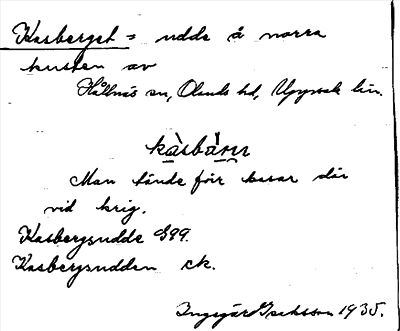 Kasberget = udde å norra
kusten av
Hållnäs sn, Olands hd, Uppsala län.
kàsbár̩
Man tände förr kasar där
vid krig.
Kasbergsudde G99.
Kasbergsudden ek.
Ingegär Grehssson 1935.